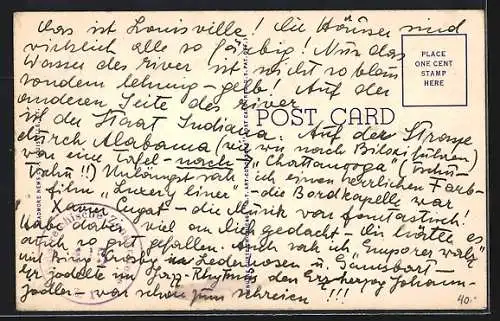 Das ist Louisville! Die Häuser sind
wirklich alle so färbig! Nur das
Wasser des River ist nicht so blau
sondern lehmig-gelb! Auf der
anderen Seite des River
ist der Staat Indiana. Auf der Strasse
durch Alabama (wie wir nach Biloxi führen)
war eine Tafel - nach "Chattanooga"
Unlängst sah ich einen herrlichen Farb-
film "Luxury liner" - die Bordkapelle war
Xavier Cugat - die Musik war fantastisch!
Habe dabei viel an Dich gedacht - Dir hätte es
auch so gut gefallen. Auch sah ich "Emperor walz"
mit Bing Crosby in Lederhosen u. Gamsbart -
Er jodelte im Jazz-Rhythmus den Erzherzog Johann-
Jodler - war schon zum schreien!!!
PLACE
ONE CENT
STAMP
HERE
POST CARD
40.-